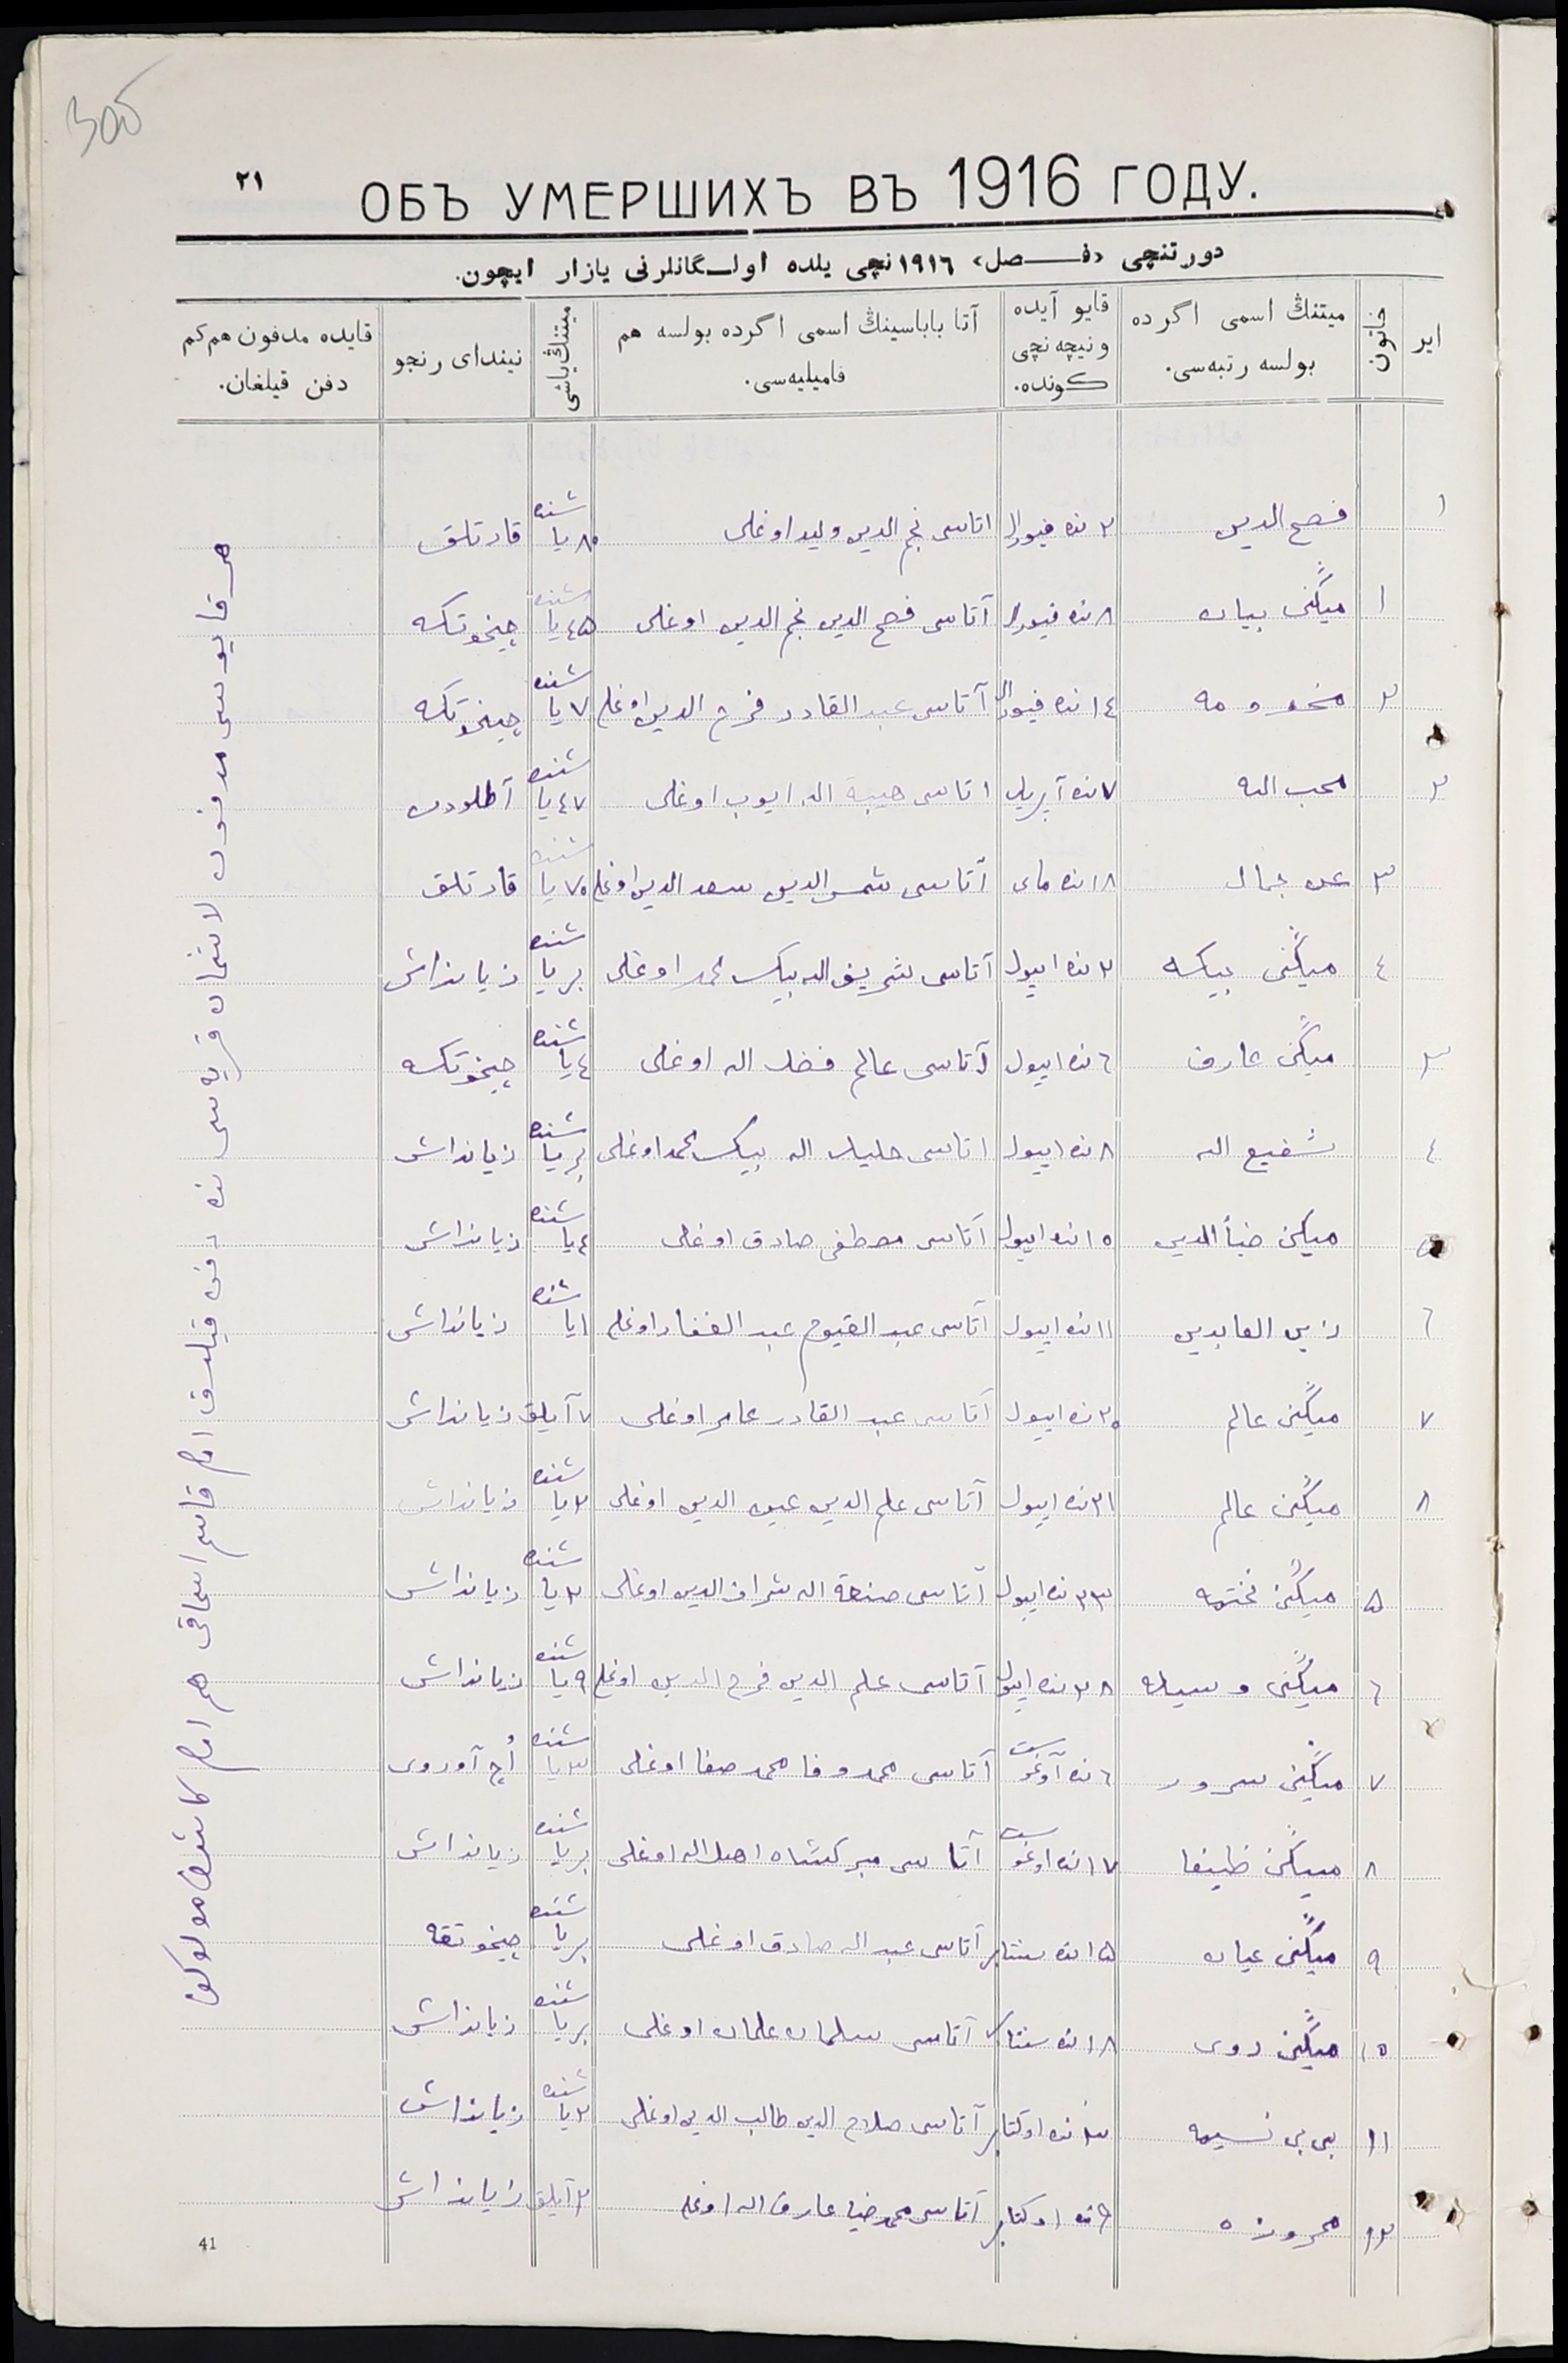 305
٢١
ОБЪ УМЕРШИХЪ ВЪ 1916 ГОДУ.
دورتنچی «فـصل» ١٩١٦ نچی یلده اولـگانلرنی یازار ایچون.
ایر
خاتون
میتنڭ اسمی اگرده بولسه رتبه‌سی.
قایو آیده ونیچه نچی كونده.
آتا باباسینڭ اسمی اگرده بولسه هم فامیلیه‌سی.
میتنڭ یاشی
نیندای رنجو
قایده مدفون هم كم دفن قیلغان.
١ فصح الدین ٢ نده فیورال اتاسی نجم الدین ولید اوغلی ٨٠ یاشنده قارتلق
١ میڭنی بیان ٨ نده فیورال آتاسی فصح الدین نجم الدین اوغلی ٤٥ یاشنده چیخوتكه
٢ مخدومه ١٤ نده فیورال آتاسی عبد القادر فرح الدین اوغلی ٧ یاشنده چیخوتكه
٢ محب الله ٧ نده آپریل اتاسی هبة الله ایوب اوغلی ٤٧ یاشنده
٣ جمال ١٨ نده مای آتاسی شمس الدین سعد الدین اوغلی ٧٠ یاشنده قارتلق
٤ میڭنی بیكه ٢ نده اییول آتاسی شریف الله بیك محمد اوغلی بر یاشنده زیانداش
٣ میڭنی عارف ٦ نده اییول آتاسی عالم فضل الله اوغلی ٤ یاشنده چیخوتكه
٤ شفیع الله ٨ نده اییول اتاسی خلیل الله بیك محمد اوغلی بر یاشنده زیانداش
٥ میڭن ضیأ الدین ١٠ نده اییول آتاسی مصطفی صادق اوغلی ٤ یاشنده زیانداش
٦ زین العابدین ١١ نده اییول آتاسی عبد القیوم عبد الغفار اوغلی ١ یاشنده زیانداش
٧ میڭنی عالم ٢٠ نده اییول آتاسی عبد القادر عامر اوغلی ٧ آیلق زیانداش
٨ میڭنی عالم ٢١ نده اییول آتاسی علم الدین عین الدین اوغلی ٢ یاشنده زیانداش
٥ میڭنی ٢٣ نده اییول آتاسی صنعة الله شراف الدین اوغلی ٢ یاشنده زیانداش
٦ میڭنی وسیله ٢٨ نده اییول آتاسی علم الدین فرح الدین اوغلی ٩ یاشنده زیانداش
٧ میڭنی سرور ٦ نده آوغوست آتاسی محمد وفا محمد صفا اوغلی ٣ یاشنده اچ آوروی
٨ میڭنی ظریفا ١٧ نده اوغوست آتاسی اهل الله اوغلی بر یاشنده زیانداش
٩ میڭنی عیان ١٥ نده سنتابر آتاسی عبد الله صادق اوغلی بر یاشنده چیخوتقه
١٠ میڭنی روی ١٨ نده سنتابر آتاسی سلمان علمان اوغلی بر یاشنده زیانداش
١١ بی بی نسیمه ٣ نده اوكتابر آتاسی صلاح الدین طالب الدین اوغلی ٢ یاشنده زیانداش
١٢ محروزه ٩ نده اوكتابر آتاسی محمد ضیا عارف الله اوغلی ٢ آیلق زیانداش
هر قایوسی مدفون قریه‌سی نده دفن قیلدق امام قاسم اسحاقی هم امام
41